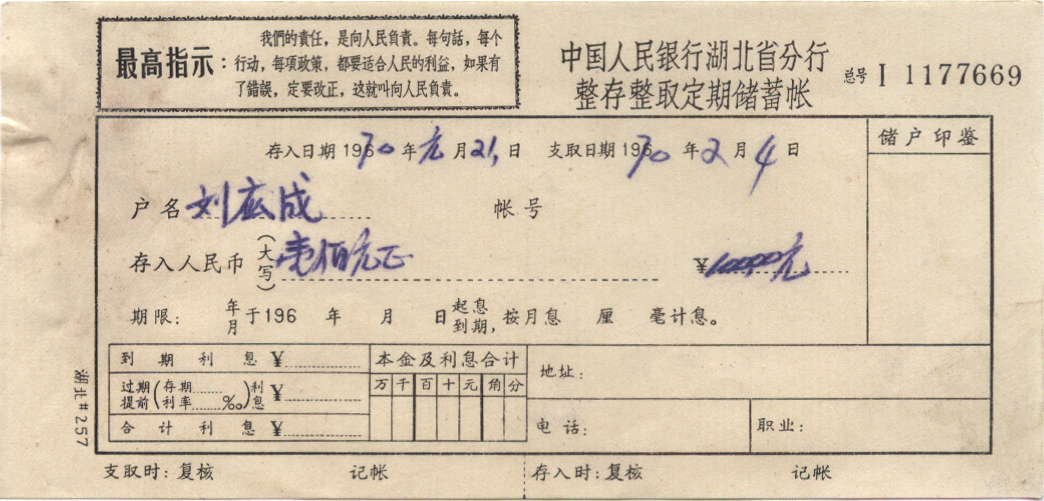 最高指示：
我們的責任，是向人民負責。每句話，每个
行动，每項政策，都要适合人民的利益，如果有
了錯誤，定要改正，这就叫向人民負責。
中国人民银行湖北省分行
整存整取定期储蓄帐
总号 I 1177669
存入日期 196 70 年 元 月 21 日 支取日期 196 70 年 2 月 4 日
储户印鉴
户名 刘 成 帐号
存入人民币（大写）壹佰元正 ¥ 元
期限：年月于196 年 月 日起息到期，按月息 厘 毫计息。
到期利息 ¥
本金及利息合计
地址：
过期提前（存期利率 ‰）利息 ¥
万 千 百 十 元 角 分
合计利息 ¥
电话：
职业：
湖北#257
支取时：复核 记帐 存入时：复核 记帐